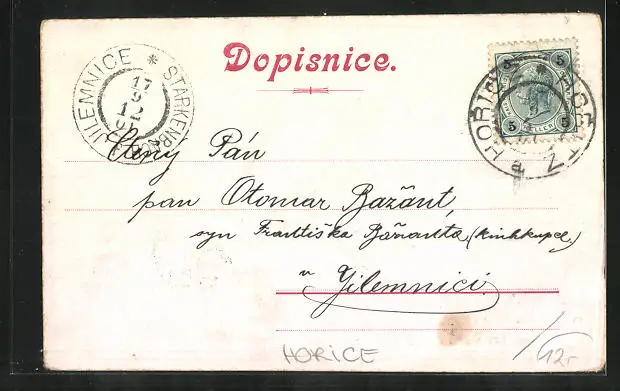 Dopisnice.
JILEMNICE * STARKENBACH
17
9
12
5 5
5 HELLER 5
HOŘICE
Ctěný Pán
pan Otomar Bažant,
syn Františka Bažanta,
v Jilemnici.
HORICE
12,-